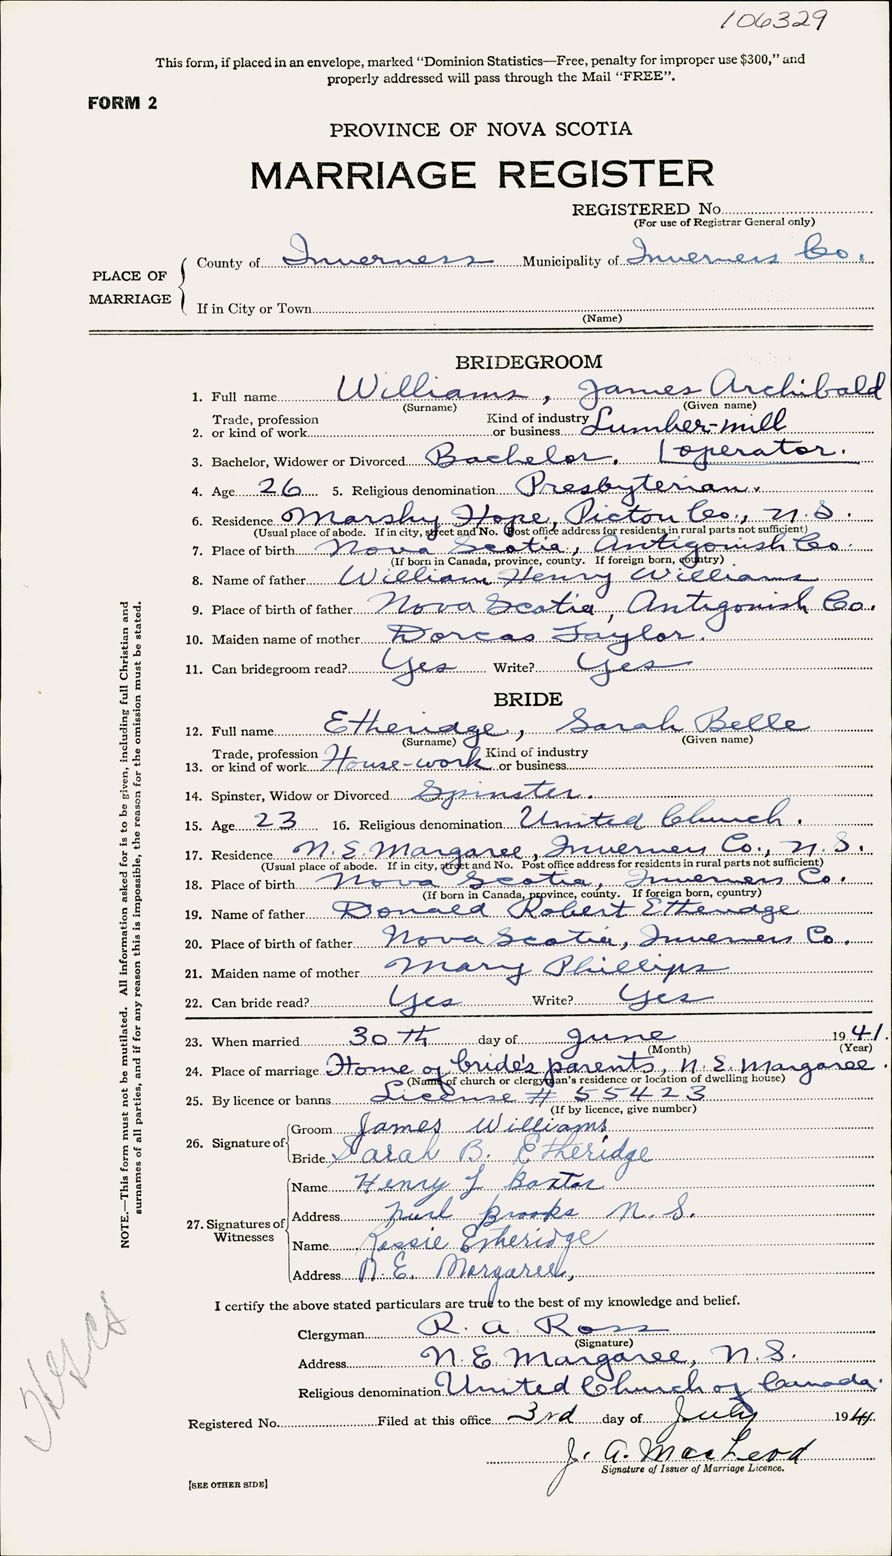 106329
This form, if placed in an envelope, marked "Dominion Statistics—Free, penalty for improper use $300," and
properly addressed will pass through the Mail "FREE".
FORM 2
PROVINCE OF NOVA SCOTIA
MARRIAGE REGISTER
REGISTERED No.
(For use of Registrar General only)
PLACE OF MARRIAGE
County of Inverness Municipality of Inverness Co.
If in City or Town
(Name)
BRIDEGROOM
1. Full name Williams, James Archibald
(Surname) (Given name)
Trade, profession Kind of industry
2. or kind of work or business Lumber-mill
3. Bachelor, Widower or Divorced Bachelor. operator.
4. Age 26 5. Religious denomination Presbyterian.
6. Residence Marshy Hope, Pictou Co., N.S.
(Usual place of abode. If in city, street and No. Post office address for residents in rural parts not sufficient)
7. Place of birth Nova Scotia, Antigonish Co.
(If born in Canada, province, county. If foreign born, country)
8. Name of father William Henry Williams
9. Place of birth of father Nova Scotia, Antigonish Co.
10. Maiden name of mother Dorcas Taylor.
11. Can bridegroom read? Yes Write? Yes
BRIDE
12. Full name Etheridge, Sarah Belle
(Surname) (Given name)
Trade, profession Kind of industry
13. or kind of work House-work or business
14. Spinster, Widow or Divorced Spinster.
15. Age 23 16. Religious denomination United Church.
17. Residence N.E. Margaree, Inverness Co., N.S.
(Usual place of abode. If in city, street and No. Post office address for residents in rural parts not sufficient)
18. Place of birth Nova Scotia, Inverness Co.
(If born in Canada, province, county. If foreign born, country)
19. Name of father Donald Robert Etheridge
20. Place of birth of father Nova Scotia, Inverness Co.
21. Maiden name of mother Mary Phillips
22. Can bride read? Yes Write? Yes
23. When married 30th day of June 1941.
(Month) (Year)
24. Place of marriage Home of bride's parents, N.E. Margaree.
(Name of church or clergyman's residence or location of dwelling house)
25. By licence or banns License # 55423
(If by licence, give number)
26. Signature of
Groom James Williams
Bride Sarah B. Etheridge
27. Signatures of Witnesses
Name Henry
Address Brooks N.S.
Name Etheridge
Address N.E. Margaree,
I certify the above stated particulars are true to the best of my knowledge and belief.
Clergyman R. A. Ross
(Signature)
Address N.E. Margaree, N.S.
Religious denomination United Church of Canada.
Registered No. Filed at this office 3rd day of July 1941.
J. A. MacLeod
Signature of Issuer of Marriage Licence.
[SEE OTHER SIDE]
NOTE.—This form must not be mutilated. All information asked for is to be given, including full Christian and
surnames of all parties, and if for any reason this is impossible, the reason for the omission must be stated.